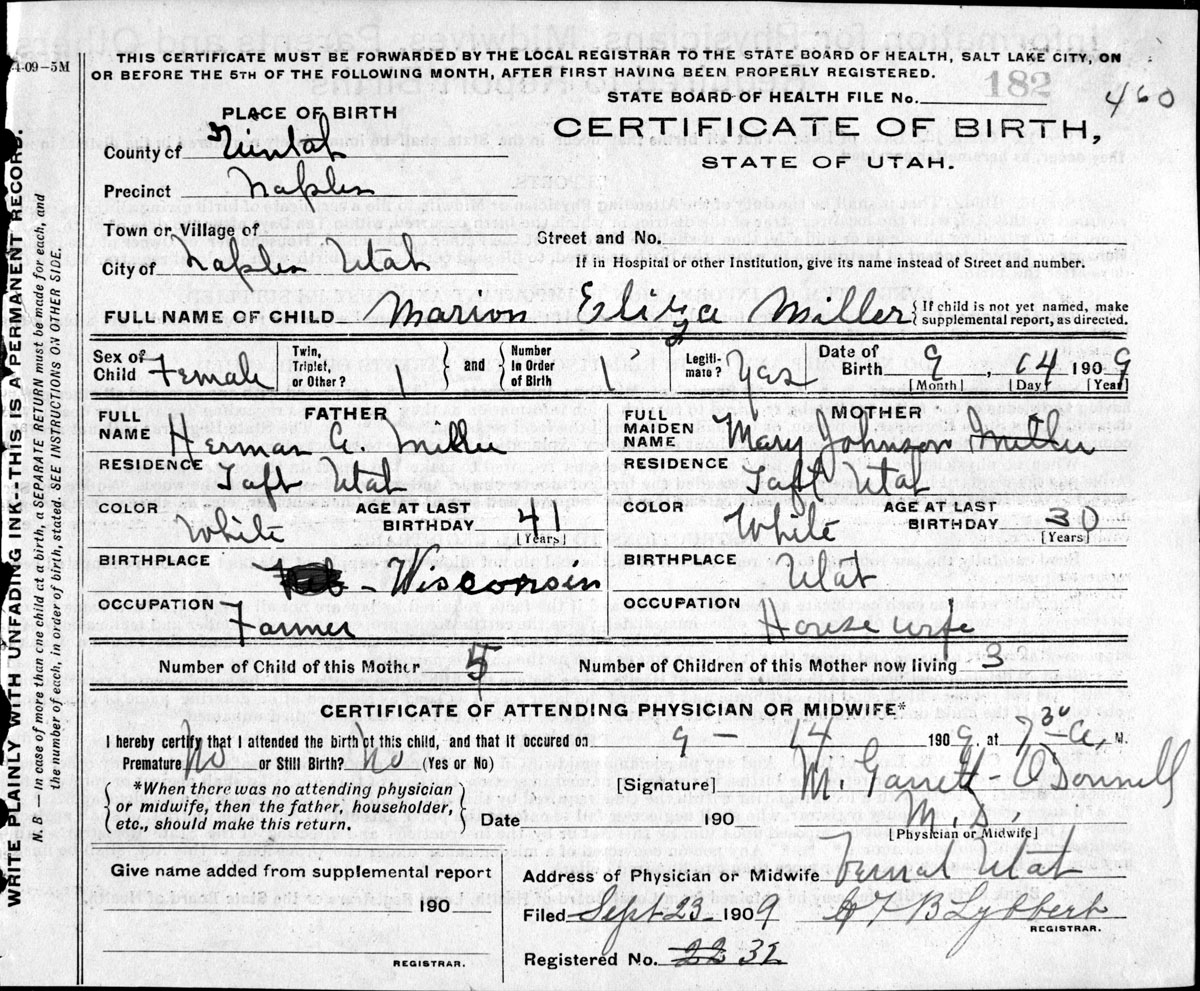 4-09-5M
THIS CERTIFICATE MUST BE FORWARDED BY THE LOCAL REGISTRAR TO THE STATE BOARD OF HEALTH, SALT LAKE CITY, ON
OR BEFORE THE 5TH OF THE FOLLOWING MONTH, AFTER FIRST HAVING BEEN PROPERLY REGISTERED.
182
460
STATE BOARD OF HEALTH FILE No.
PLACE OF BIRTH
CERTIFICATE OF BIRTH,
STATE OF UTAH.
County of Uintah
Precinct Naples
Town or Village of
Street and No.
City of Naples Utah
If in Hospital or other Institution, give its name instead of Street and number.
FULL NAME OF CHILD Marion Esliza Miller { If child is not yet named, make
supplemental report, as directed.
Sex of Child Female
Twin, Triplet, or Other? 1 } and { Number In Order of Birth 1
Legiti- mate? Yas
Date of Birth 9 14 1909
[Month] [Day] [Year]
FATHER
FULL NAME Herman C. Miller
MOTHER
FULL MAIDEN NAME Mary Johnson Miller
RESIDENCE Taft Utah
RESIDENCE Taft Utah
COLOR White AGE AT LAST BIRTHDAY 41 [Years]
COLOR White AGE AT LAST BIRTHDAY 30 [Years]
BIRTHPLACE - Wisconsin
BIRTHPLACE Utah
OCCUPATION Farmer
OCCUPATION House wife
Number of Child of this Mother 5
Number of Children of this Mother now living 3
CERTIFICATE OF ATTENDING PHYSICIAN OR MIDWIFE*
I hereby certify that I attended the birth of this child, and that it occured on 9 - 14 1909 at 7 30 A. M.
Premature No or Still Birth? No (Yes or No)
[Signature] M. Garrett-O'Donnell
M. D.
[Physician or Midwife]
{ *When there was no attending physician
or midwife, then the father, householder,
etc., should make this return. }
Date 190
Give name added from supplemental report
190
REGISTRAR.
Address of Physician or Midwife Vernal Utah
Filed Sept 23 1909 B Lybbert
REGISTRAR.
Registered No. 22 32
WRITE PLAINLY WITH UNFADING INK—THIS IS A PERMANENT RECORD.
N. B.—In case of more than one child at a birth, a SEPARATE RETURN must be made for each, and
the number of each, in order of birth, stated. SEE INSTRUCTIONS ON OTHER SIDE.